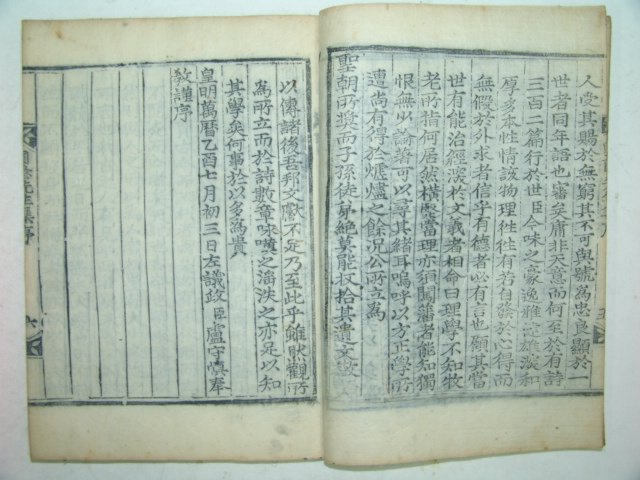 人受其賜於無窮其不可與號爲忠良顯於一
世者同年語也審矣庸非天意而何至於有詩
三百二篇行於世臣今味之豪逸雅遒雄深和
厚多本性情該物理徃徃有若自發於心得而
無假於外求者信乎有德者必有言也顧其當
世有能治經深於文義者相命曰理學不知牧
老所指何居然橫竪當理亦須闖藩者能知獨
恨無少論著可以尋其緖耳嗚呼以方正學所
遭尚有得於煨燼之餘况公所立爲
聖朝所奬而子孫徒弟絶莫能收拾其遺文
以傳諸後吾邦文獻不足乃至此乎雖狀觀所
爲所立而於詩數章咏嘆之滛泆之亦足以知
其學矣何事於以多爲貴
皇明萬曆乙酉七月初三日左議政臣盧守愼奉
敎謹序
先生集序
六